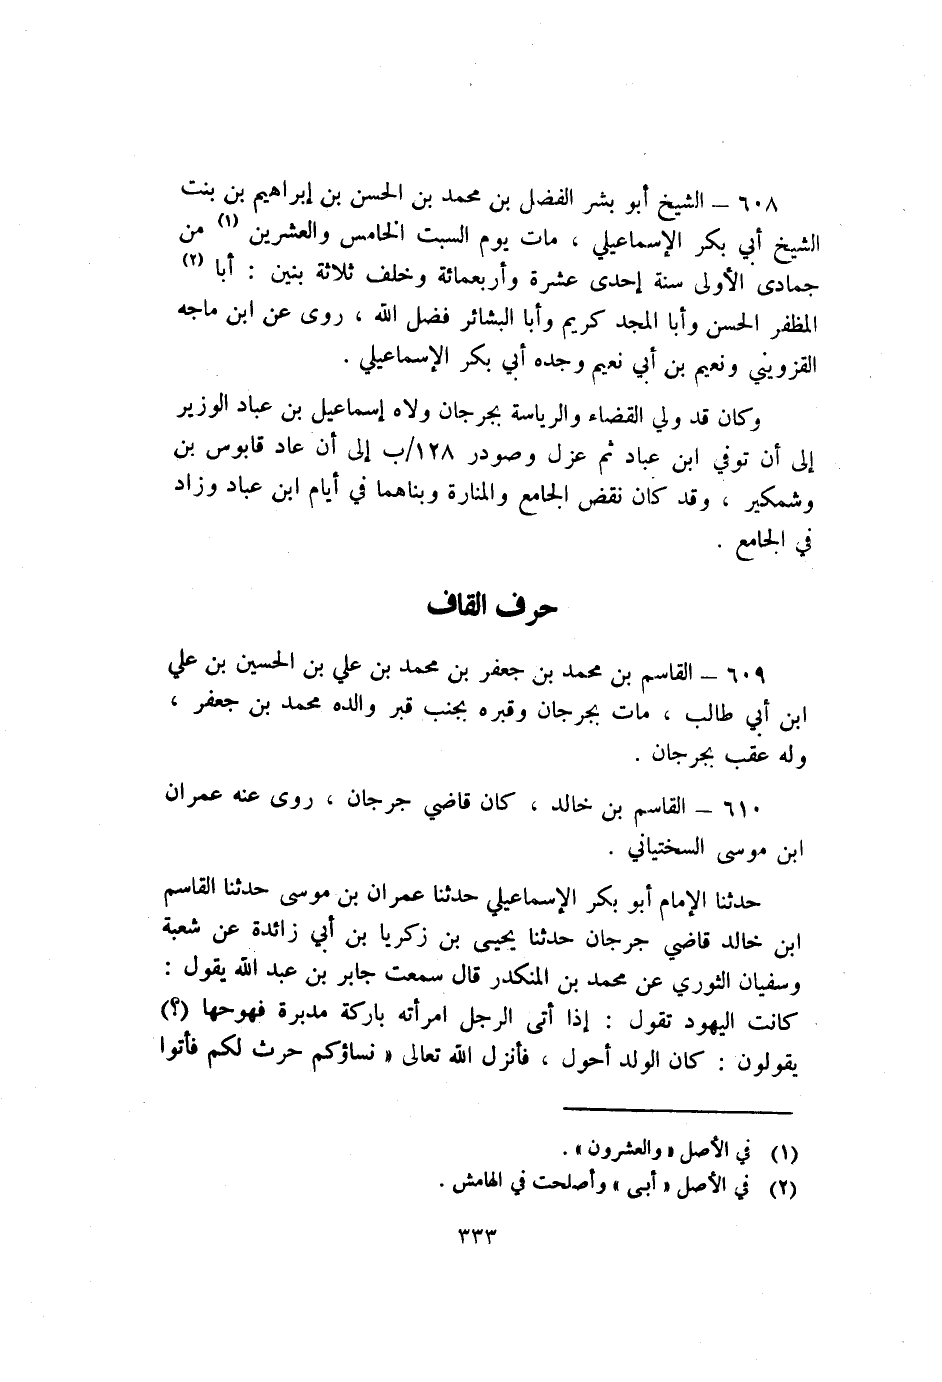 ٦٠٨ – الشيخ أبو بشر الفضل بن محمد بن الحسن بن إبراهيم بن بنت
الشيخ أبي بكر الإسماعيلي ، مات يوم السبت الخامس والعشرين (١) من
جمادى الأولى سنة إحدى عشرة وأربعمائة وخلف ثلاثة بنين : أبا (٢)
المظفر الحسن وأبا المجد كريم وأبا البشائر فضل الله ، روى عن ابن ماجه
القزويني ونعيم بن أبي نعيم وجده أبي بكر الإسماعيلي .
وكان قد ولي القضاء والرياسة بجرجان ولاه إسماعيل بن عباد الوزير
إلى أن توفي ابن عباد ثم عزل وصودر ١٢٨/ب إلى أن عاد قابوس بن
وشمكير ، وقد كان نقض الجامع والمنارة وبناهما في أيام ابن عباد وزاد
في الجامع .
حرف القاف
٦٠٩ – القاسم بن محمد بن جعفر بن محمد بن علي بن الحسين بن علي
ابن أبي طالب ، مات بجرجان وقبره بجنب قبر والده محمد بن جعفر ،
وله عقب بجرجان .
٦١٠ – القاسم بن خالد ، كان قاضي جرجان ، روى عنه عمران
ابن موسى السختياني .
حدثنا الإمام أبو بكر الإسماعيلي حدثنا عمران بن موسى حدثنا القاسم
ابن خالد قاضي جرجان حدثنا يحيى بن زكريا بن أبي زائدة عن شعبة
وسفيان الثوري عن محمد بن المنكدر قال سمعت جابر بن عبد الله يقول :
كانت اليهود تقول : إذا أتى الرجل امرأته باركة مدبرة فهوحها (؟)
يقولون : كان الولد أحول ، فأنزل الله تعالى « نساؤكم حرث لكم فأتوا
(١) في الأصل «والعشرون» .
(٢) في الأصل « أبى » وأصلحت في الهامش .
٣٣٣